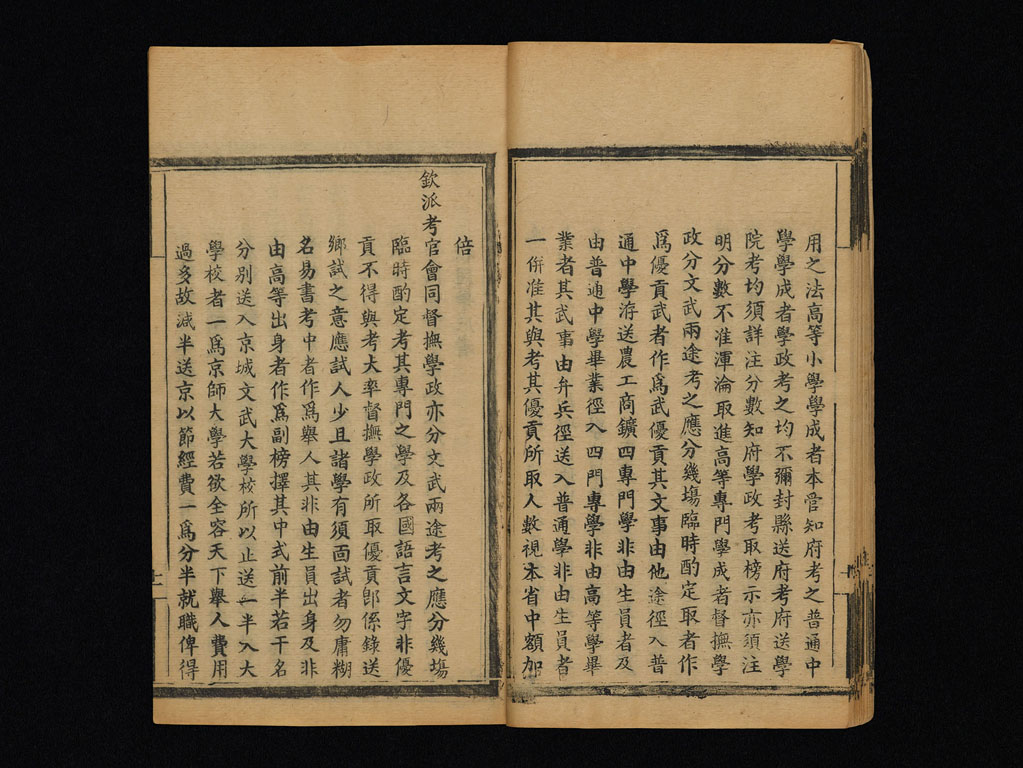 用之法高等小學學成者本管知府考之普通中
學學成者學政考之均不彌封縣送府考府送學
院考均須詳注分數知府學政考取榜示亦須注
明分數不准渾淪取進高等專門學成者督撫學
政分文武兩途考之應分幾塲臨時酌定取者作
爲優貢武者作爲武優貢其文事由他途徑入普
通中學洊送農工商鑛四專門學非由生員者及
由普通中學畢業徑入四門專學非由高等學畢
業者其武事由弁兵徑送入普通學非由生員者
一併准其與考其優貢所取人數視本省中額加
倍
欽派考官會同督撫學政亦分文武兩途考之應分幾塲
臨時酌定考其專門之學及各國語言文字非優
貢不得與考大率督撫學政所取優貢卽係錄送
鄉試之意應試人少且諸學有須面試者勿庸糊
名易書考中者作爲舉人其非由生員出身及非
由高等出身者作爲副榜擇其中式前半若干名
分別送入京城文武大學校所以止送一半入大
學校者一爲京師大學若欲全容天下舉人費用
過多故減半送京以節經費一爲分半就職俾得